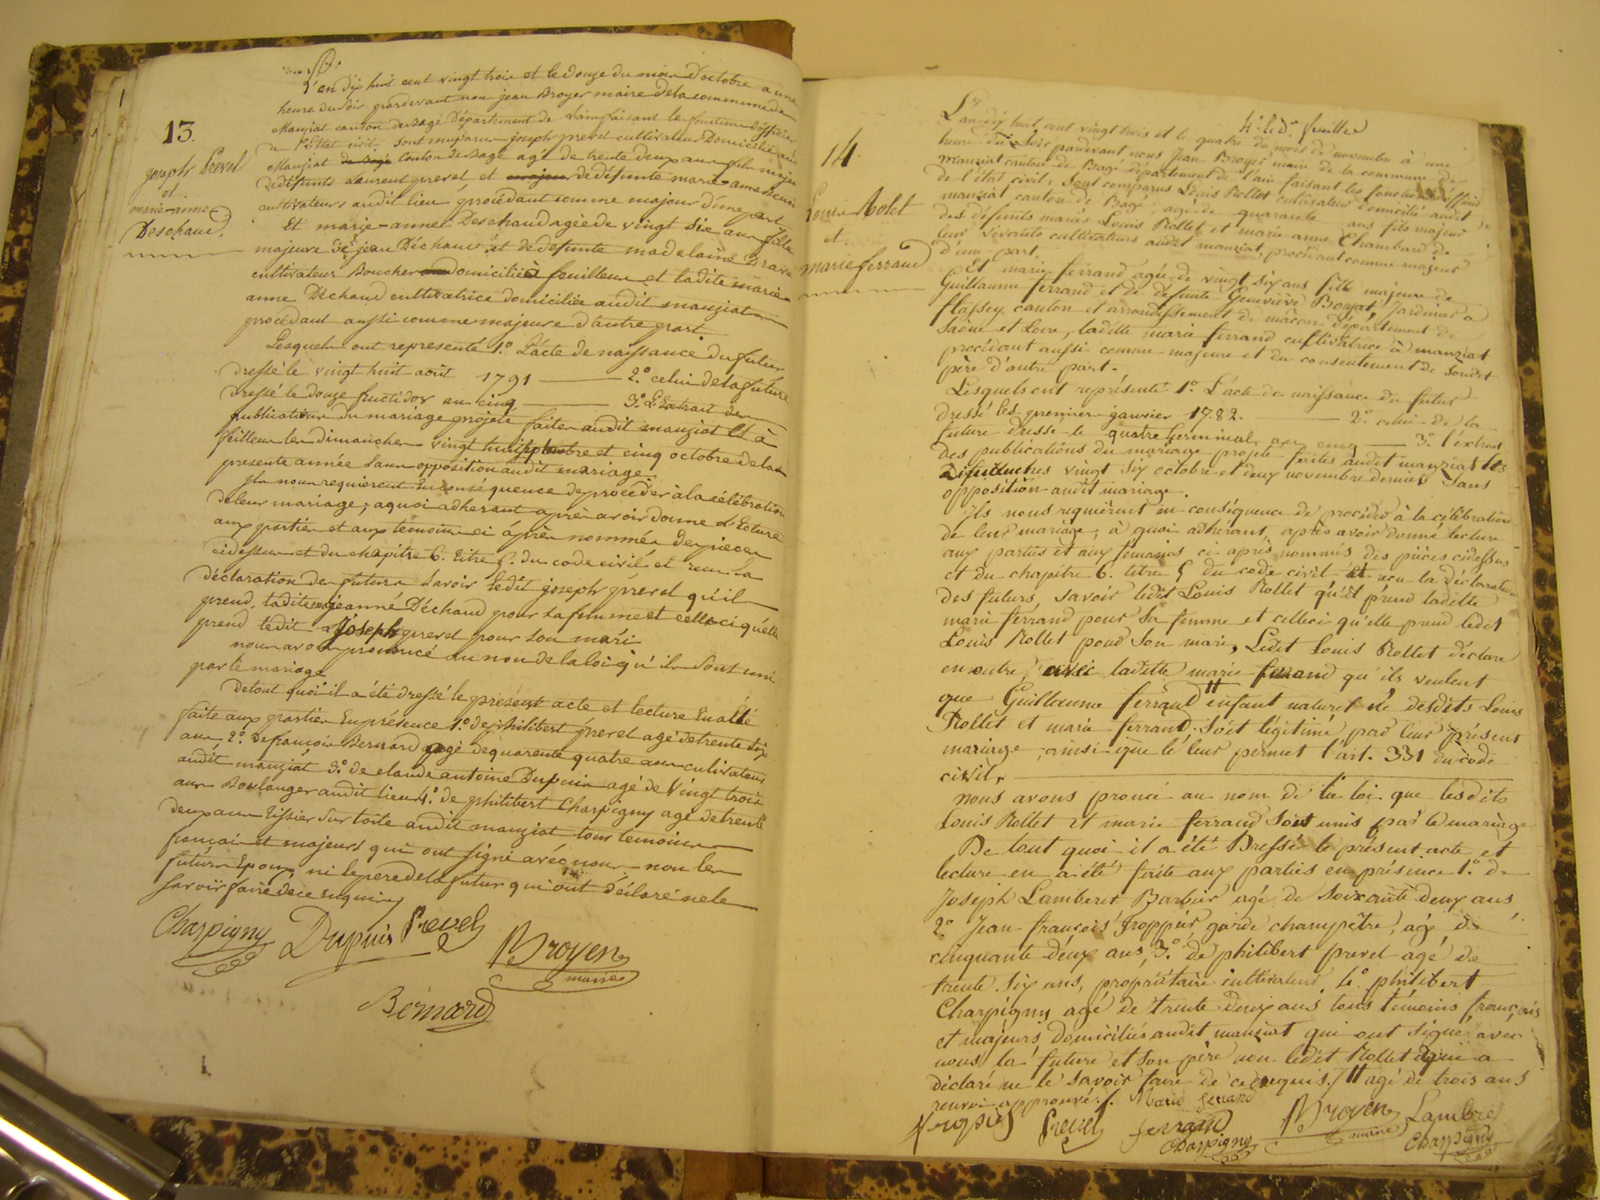 13.
joseph Prevel
et
marie-anne
Deschaud.
L'an dix huit cent vingt trois et le douze du mois d'octobre a une
heure du soir pardevant nous jean Broyer maire de la commune de
Manziat canton de Bagé Département de Lain faisant les fonctions d'officier
de l'état civil sont comparus joseph prevel cultivateur Domicilié
Manziat canton de Bagé agé de trente deux ans fils majeur
de défunts Laurent prevel et de défunte marie anne
cultivateurs audit lieu, procédant comme majeur d'une part
Et marie-anne Deschaud agée de vingt six ans fille
majeure de jean Déchaud et de defunte madelaine
cultivateur Boucher domicilié à feuillens et ladite marie
anne Déchaud cultivatrice domiciliée audit manziat
procédant aussi comme majeure d'autre part
Lesquels ont representé 1.º L'acte de naissance du futur
dressé le vingt huit août 1791 2.º celui de la future
dressé le douze fructidor an cinq 3.º L'Extrait des
publications du mariage projeté faites audit manziat et à
feillens les dimanches vingt huit septembre et cinq octobre de la
presente année sans opposition audit mariage.
ils nous requierent en conséquence de procéder à la célébration
de leur mariage; a quoi adherant après avoir donné Lecture
aux parties et aux temoins ci après nommés des pieces
cidessus et du chapitre 6. titre 5. du code civil et reçu la
déclaration des futurs savoir ledit joseph prevel qu'il
prend ladite marie anne Déchaud pour sa femme et celle ci qu'elle
prend ledit joseph prevel pour son mari
nous avons prononcé au nom de la loi qu'ils sont unis
par le mariage
De tout quoi il a été dressé le présent acte et lecture en a été
faite aux parties En présence 1.º de philibert prevel agé de trente six
ans 2.º de francois Bernard agé de quarente quatre ans cultivateurs
audit manziat 3.º de claude antoine Dupuis agé de vingt trois
ans Boulanger audit lieu 4.º de philibert Charpigny agé de trente
deux ans tissier sur toile audit manziat tous temoins
français et majeurs qui ont signé avec nous non les
futurs Epoux ni le pere de la future qui ont déclaré ne le
savoir faire de ce Enquis
Charpigny Dupuis Prevel Broyer
maire
Bernard
4e et De. feuillet
14.
Louis Rolet
et
marie ferrand
L'an dix huit cent vingt trois et le quatre du mois de novembre à une
heure du soir pardevant nous Jean Broyer maire de la commune de
manziat canton de Bagé département de l'ain faisant les fonctions d'officier
de l'état civil, Sont comparus Louis Rollet cultivateur domicilié audit
manziat canton de Bagé, agé de quarante ans fils majeur
des défunts mariés Louis Rollet et marie anne Chambard de
leur vivants cultivateurs audit manziat, procédant comme majeur
d'une part.
Et marie ferrand agée de vingt six ans fille majeure de
Guillaume ferrand et de défunte Geneviève Bonnat, jardinier a
flassey, canton et arrondissement de mâcon, département de
Saône et Loire, ladite marie ferrand cultivatrice à manziat
procédant aussi comme majeure et du consentement de Soudit
père d'autre part.
Lesquels ont représenté 1º L'acte de naissance du futur
dressé les premier janvier 1782. 2º celui de la
future dressé le quatre Germinal, an cinq 3º l'extrait
des publications du mariage projeté faites audit manziat les
Dimanches vingt six octobre et deux novembre dernier sans
opposition audit mariage.
Ils nous requièrent en conséquence de procéder à la célébration
de leur mariage, à quoi adhérant, après avoir donné lecture
aux parties et aux temoins ci après nommés des pièces cidessus
et du chapitre 6. titre 5 du code civil et reçu la déclaration
des futurs, savoir ledit Louis Rollet qu'il prend ladite
marie ferrand pour sa femme et celleci qu'elle prend ledit
Louis Rollet pour son mari, Ledit Louis Rollet déclare
en outre, avec ladite marie ferrand qu'ils veulent
que Guillaume ferrand # enfant naturel né desdits Louis
Rollet et marie ferrand, soit légitimé par leur présent
mariage, ainsi que le leur permet l'art. 331 du code
civil.
nous avons prononcé au nom de la loi que lesdits
Louis Rollet et marie ferrand sont unis par le mariage
De tout quoi il a été Dressé le présent acte et
lecture en a été faite aux parties en présence 1.º de
Joseph Lamberet Barbier agé de soixante deux ans
2.º Jean-françois garde champêtre, agé de
cinquante deux ans, 3.º de philibert prevel agé de
trente six ans, propriétaire cultivateur, 4.º philibert
Charpigny agé de trente deux ans tous témoins français
et majeurs, domiciliés audit manziat qui ont signé, avec
nous la future et son père non ledit Rollet qui a
déclaré ne le savoir faire de ce enquis. # agé de trois ans
renvoi approuvé.
Marie ferrand
Prevel ferrand Broyer maire Lambre
Charpigny Charpigny